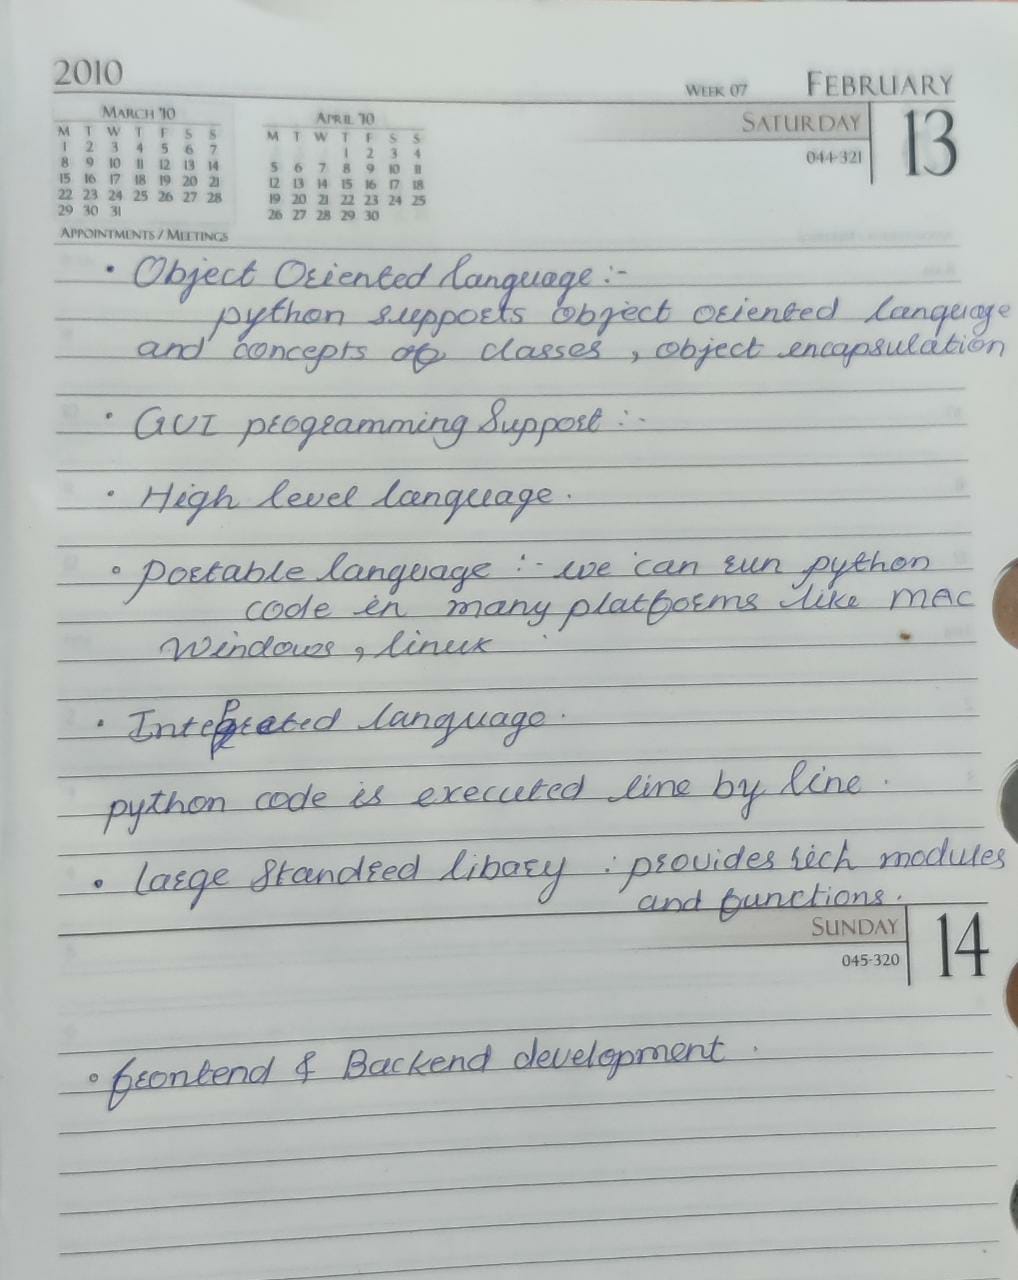 2010
WEEK 07 FEBRUARY
MARCH '10
M T W T F S S
1 2 3 4 5 6 7
8 9 10 11 12 13 14
15 16 17 18 19 20 21
22 23 24 25 26 27 28
29 30 31
APRIL '10
M T W T F S S
1 2 3 4
5 6 7 8 9 10 11
12 13 14 15 16 17 18
19 20 21 22 23 24 25
26 27 28 29 30
SATURDAY 13
044-321
APPOINTMENTS / MEETINGS
• Object Oriented language :-
python supports object oriented language
and concepts of classes , object encapsulation
• GUI programming Support :-
• High level language .
• portable language :- we can run python
code in many platforms like MAC
Windows , linux
• Intepreated language .
python code is executed line by line .
• large Standred libary : provides rich modules
and functions .
SUNDAY 14
045-320
• frontend & Backend development .